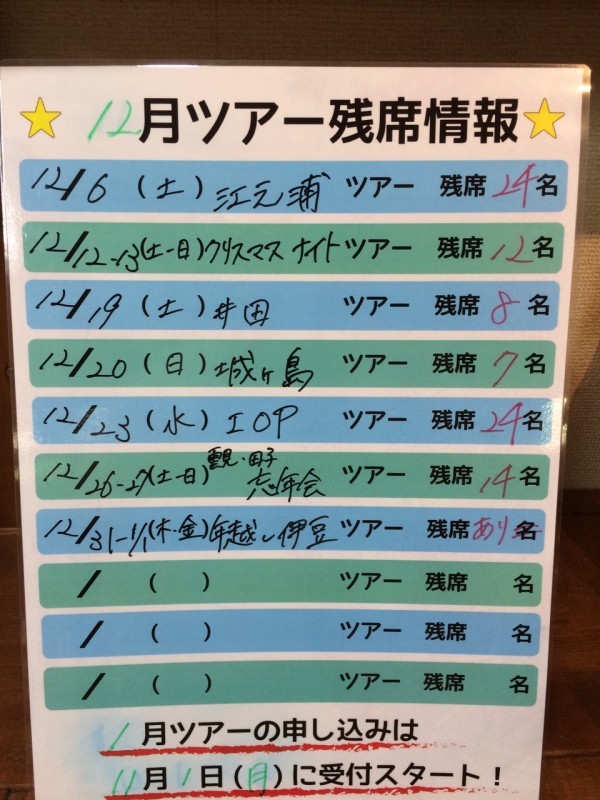 12月ツアー残席情報
12/6 (土) 江之浦 ツアー 残席 24名
12/12-13(土-日)クリスマス ナイト ツアー 残席 12名
12/19 (土) 井田 ツアー 残席 8名
12/20 (日) 城ヶ島 ツアー 残席 7名
12/23 (水) IOP ツアー 残席 24名
12/26-27(土-日) 雲見・田子 忘年会 ツアー 残席 14名
12/31-1/1(木・金)年越し伊豆 ツアー 残席 あり 名
/ ( ) ツアー 残席 名
/ ( ) ツアー 残席 名
/ ( ) ツアー 残席 名
1月ツアーの申し込みは
11月1日(月)に受付スタート!